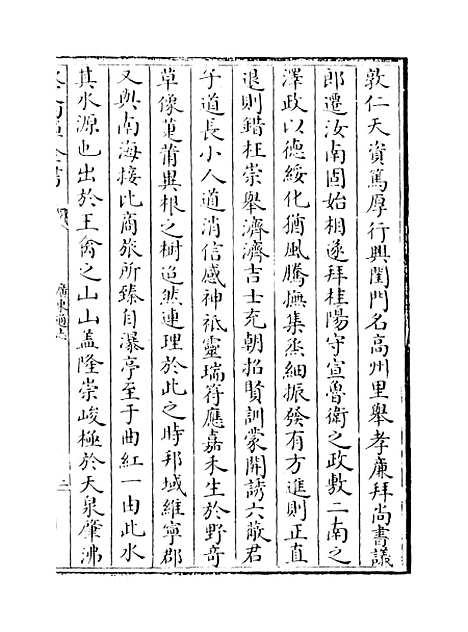 敦仁天資篤厚行興閨門名高州里舉孝廉拜尚書議
郎遷汝南固始相遂拜桂陽守宣魯衛之政敷二南之
澤政以德綏化猶風騰撫集烝細振發有方進則正直
退則錯枉崇舉濟濟吉士充朝招賢訓蒙開誘六蔽君
子道長小人道消信感神祇靈瑞符應嘉禾生於野奇
草像蓂莆異根之樹迢然連理於此之時邦域維寧郡
又與南海接比商旅所臻自瀑亭至于曲紅一由此水
其水源也出於王禽之山山蓋隆崇峻極於天泉肇沸
廣東通志
二